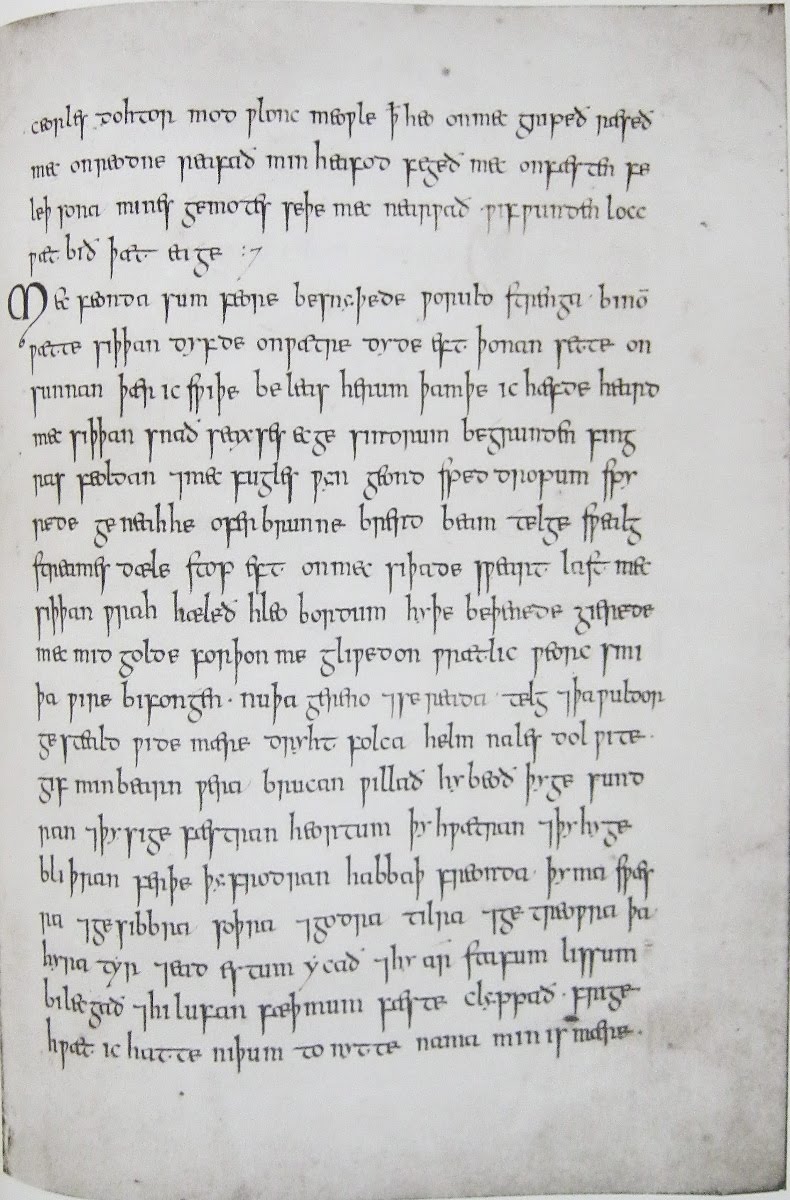 ceorles dohtor modƿlonc meoƿle ꝥ heo onmec gripeð ræseð
mec onreodne reafað min heafod fegeð mec onfæsten fe
leþ sona mines gemotes seþe mec nearƿað ƿif ƿunden locc
ƿæt bið þæt eage :7
Mec feonda sum feore besnyþede ƿoruld strenga binō
ƿætte siþþan dyfde onƿætre dyde eft þonan sette on
sunnan þær ic sƿiþe beleas herum þamþe ic hæfde heard
mec siþþan snað seaxses ecge sindrum begrunden fing
ras feoldan ⁊mec fugles ƿyn geond sped dropum spy
rede geneahhe ofer brunne brerd beam telge sƿealg
streames dæle stop eft onmec siþade sƿeart last mec
siþþan ƿrah hæleð hleo bordum hyþe beþenede gierede
mec mid golde forþon me gliƿedon ƿrætlic ƿeorc smi
þa ƿire bifongen · nuþa gereno ⁊se reada telg ⁊þaƿuldor
gesteald ƿide mære dryht folca helm nales dol ƿite ·
gif minbearn ƿera brucan ƿillað hy beoð þy ge sund
ran ⁊þy sige fæstran heortum þy hƿætran ⁊þy hyge
bliþran ferþe þy frodran habbaþ freonda þyma sƿæs
ra ⁊ge sibbra soþra ⁊godra tilra ⁊ge treoƿra þa
hyra tyr ⁊ead estum ycað ⁊hy ar stafum lissum
bilecgað ⁊hi lufan fæþmum fæste clyppað · frige
hƿæt ic hatte niþum to nytte nama min is mære ·